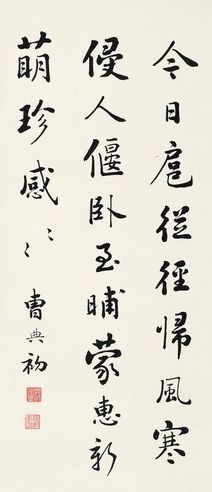 今日扈從徑歸風寒
侵人偃卧至晡蒙惠新
萌珍感〻
曹典初